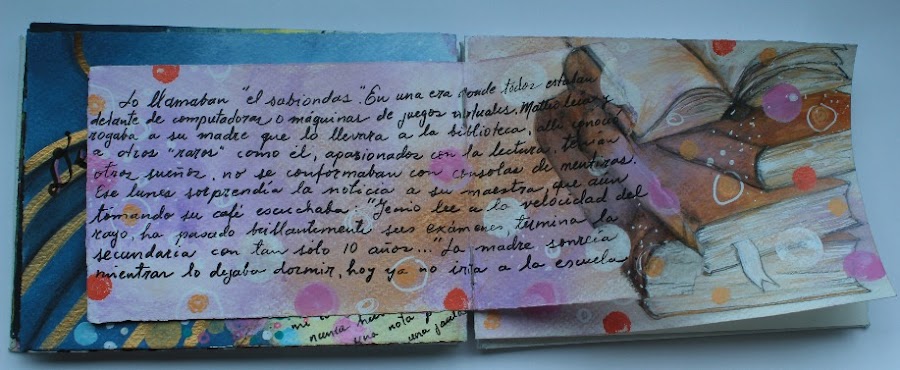 Lo llamaban "el sabiondas". En una era donde todos estaban
delante de computadoras o máquinas de juegos virtuales. Matteo leía y
rogaba a su madre que lo llevara a la biblioteca, allí conoció
a otros "raros" como él, apasionados con la lectura, tenían
otros sueños, no se conformaban con consolas de mentiras.
Ese lunes sorprendía la noticia a su maestra que aún
tomando su café escuchaba: "Genio lee a la velocidad del
rayo, ha pasado brillantemente sus exámenes, termina la
secundaria con tan sólo 10 años..." La madre sonreía
mientras lo dejaba dormir, hoy ya no iría a la escuela
mi
nunca
una nota
una